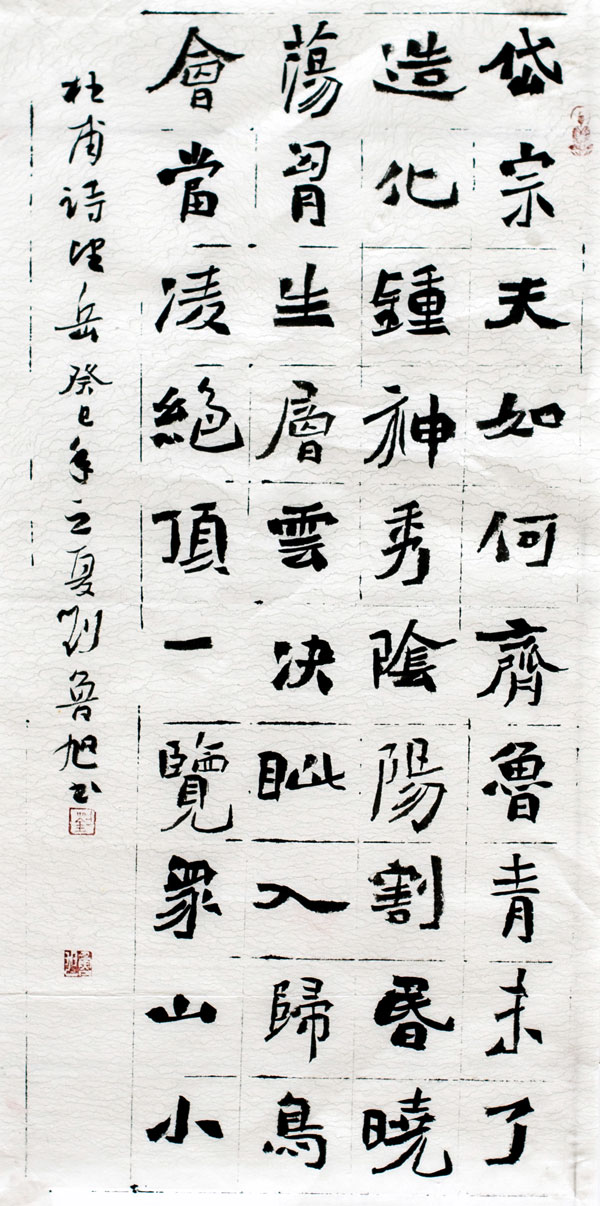 岱宗夫如何齊魯青未了
造化鍾神秀陰陽割昏曉
蕩胷生層雲决眦入歸鳥
會當凌絕頂一覽眾山小
杜甫诗望岳癸巳年之夏劉魯旭书